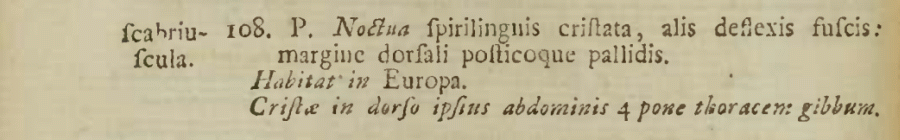 ſcabriu- 108. P. Noctua ſpirilinguis criſtata, alis deflexis fuſcis:
ſcula. margine dorſali poſticoque pallidis.
Habitat in Europa.
Criſtæ in dorſo ipſius abdominis 4 pone thoracem gibbum.